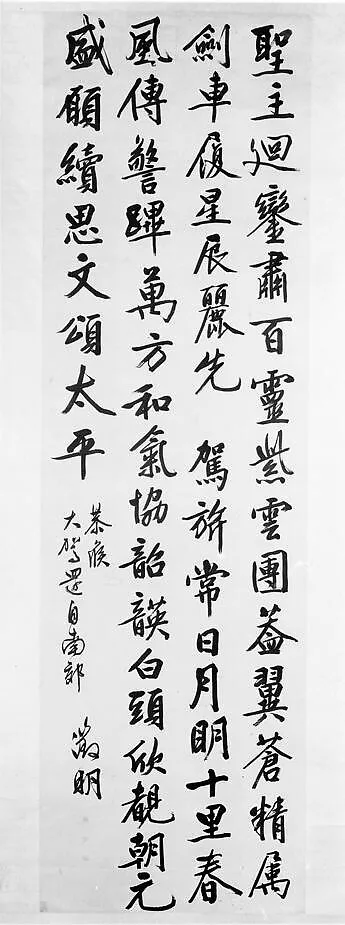 聖主廻鑾肅百靈紫雲團蓋翼蒼精属
劍車履星辰麗先 駕旂常日月明十里春
風傳警蹕萬方和氣協韶韺白頭欣覩朝元
盛願續思文頌太平
恭候
大駕還自南郊
徵明